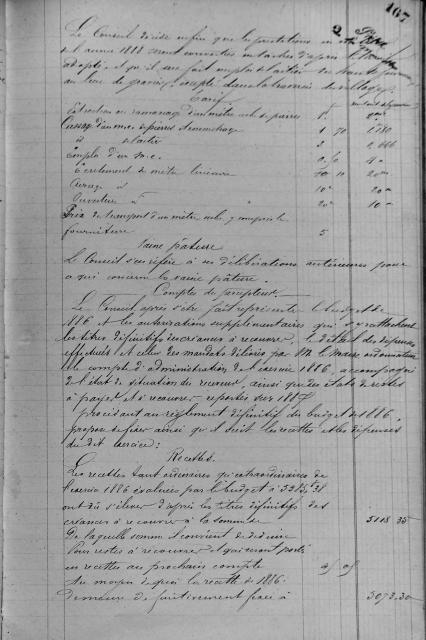 107
Le Conseil décide enfin que les prestations en
de l'année 1888 seront converties en tâches d'après le
adopté et qu'il sera fait emploi de
au lieu de gravier, excepté dans la traverse du village
Tarif
Extraction ou ramassage d'un mètre cube de pierres 1
Cassage d'un m.c. de pierres 1 70
id 2 2,666
Emploi d'un m.c.
Ecrêtement de mètre linéaire
Curage id
Ouverture id
Prix de transport d'un mètre cube y compris la
fourniture 5
Vaine pâture
Le Conseil s'en réfère à ses délibérations antérieures pour
ce qui concerne la vaine pâture.
Comptes du percepteur.
Le Conseil après s'être fait représenter le budget de
1886 et les autorisations supplémentaires qui s'y rattachent
les titres définitifs des créances à recouvrer, le détail des dépenses
effectuées et celui des mandats délivrés par M. le Maire, ordonnateur
le compte d'administration de l'exercice 1886, accompagné
de l'état de situation du receveur, ainsi que des états de restes
à payer et à recouvrer reportés sur 1887
procédant au règlement définitif du budget de 1886,
propose de fixer ainsi qu'il suit les recettes et les dépenses
du dit exercice:
Recettes.
Les recettes tant ordinaires qu'extraordinaires de
l'exercice 1886 évaluées par le budget à
ont dû s'élever d'après les titres définitifs des
créances à recouvrer à la somme de 5118 35
De laquelle somme il convient de déduire
Pour restes à recouvrer et qui seront portés
en recettes au prochain compte
Au moyen de quoi la recette de 1886
demeure définitivement fixée à 5073.30